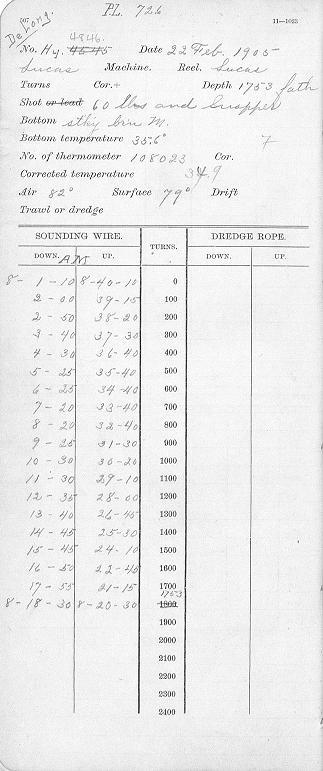 PL. 726
DeLong.
507
11—1023
4846.
No. Hy. 4545 Date 22 Feb. 1905
Lucas Machine. Reel. Lucas
Turns Cor. + Depth 1753 fath
Shot or lead 60 lbs and Snapper
Bottom stky brn M.
Bottom temperature 35.6° 7
No. of thermometer 108023 Cor.
Corrected temperature 34.9
Air 82° Surface 79° Drift
Trawl or dredge
SOUNDING WIRE. TURNS. DREDGE ROPE.
DOWN. AM UP. DOWN. UP.
8- 1-10 8-40-10 0
2-00 39-15 100
2-50 38-20 200
3-40 37-30 300
4-30 36-40 400
5-25 35-40 500
6-25 34-40 600
7-20 33-40 700
8-20 32-40 800
9-25 31-30 900
10-30 30-20 1000
11-30 29-10 1100
12-35 28-00 1200
13-40 26-45 1300
14-45 25-30 1400
15-45 24-10 1500
16-50 22-45 1600
17-55 21-15 1700
1753
8-18-30 8-20-30 1800
1900
2000
2100
2200
2300
2400